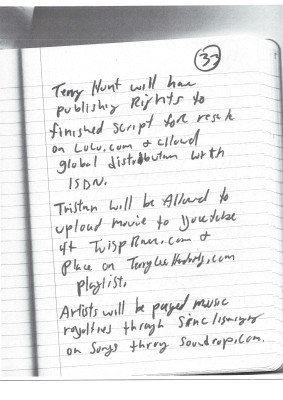 33
Terry Hunt will have
publishing Rights to
finished script for resale
on Lulu.com & allowed
global distribution with
ISDN.
Tristan will be Allowed to
upload movie to Youtube
at .com &
Place on .com
playlist.
Artists will be payed music
royalties through
on Songs throug Soundrop.com.